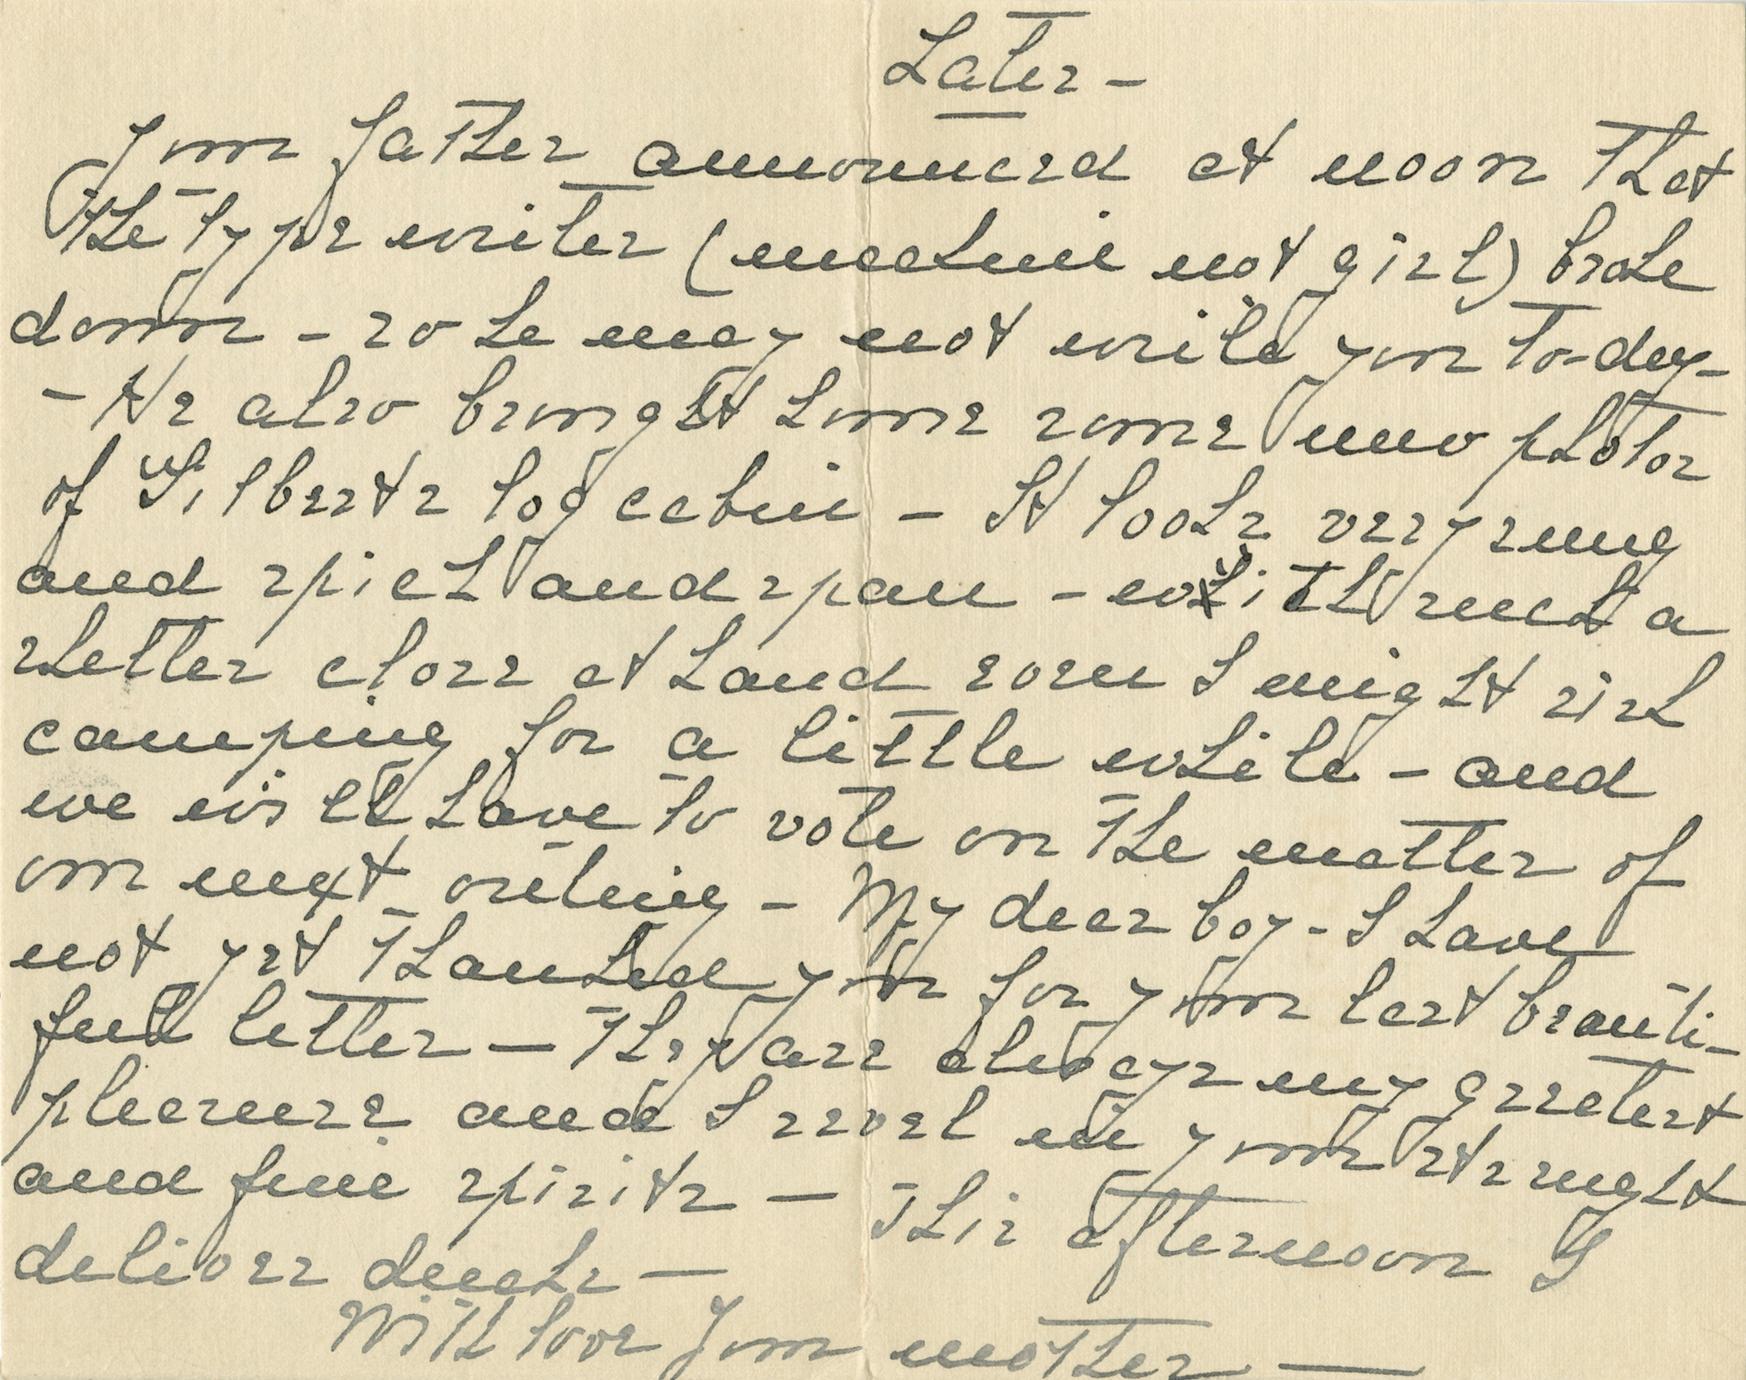 Later -
Your father announced at noon that
the typewriter (machine not girl) broke
down - so he may not write you to-day -
- He also brought home some new photos
of Gilberts log cabin - It looks very snug
and spick and span - with such a
shelter close at hand even I might risk
camping for a little while - and
we will have to vote on the matter of
our next outing - My dear boy - I have
not yet thanked you for your last beauti-
ful letter - They are always my greatest
pleasure and I revel in your strength
and fine spirits - This afternoon I
deliver ducks -
With love Your mother -